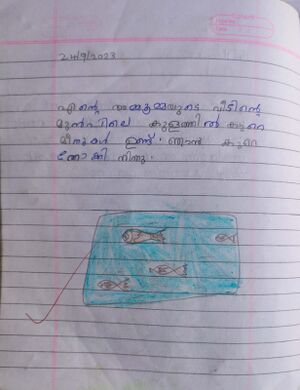 24/9/2023
എന്റെ അമ്മൂമ്മയുടെ വീടിന്റെ
മുൻപിലെ കുളത്തിൽ കുറെ
മീനുകൾ ഉണ്ട്. ഞാൻ കുറെ
നോക്കി നിന്നു.